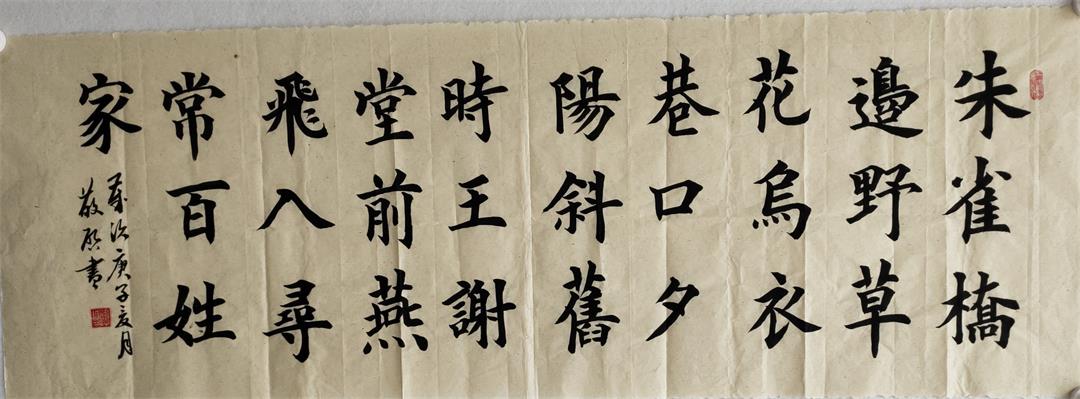 朱雀橋
邊野草
花烏衣
巷口夕
陽斜舊
時王謝
堂前燕
飛入尋
常百姓
家
歲次庚子夏月
敬啓書